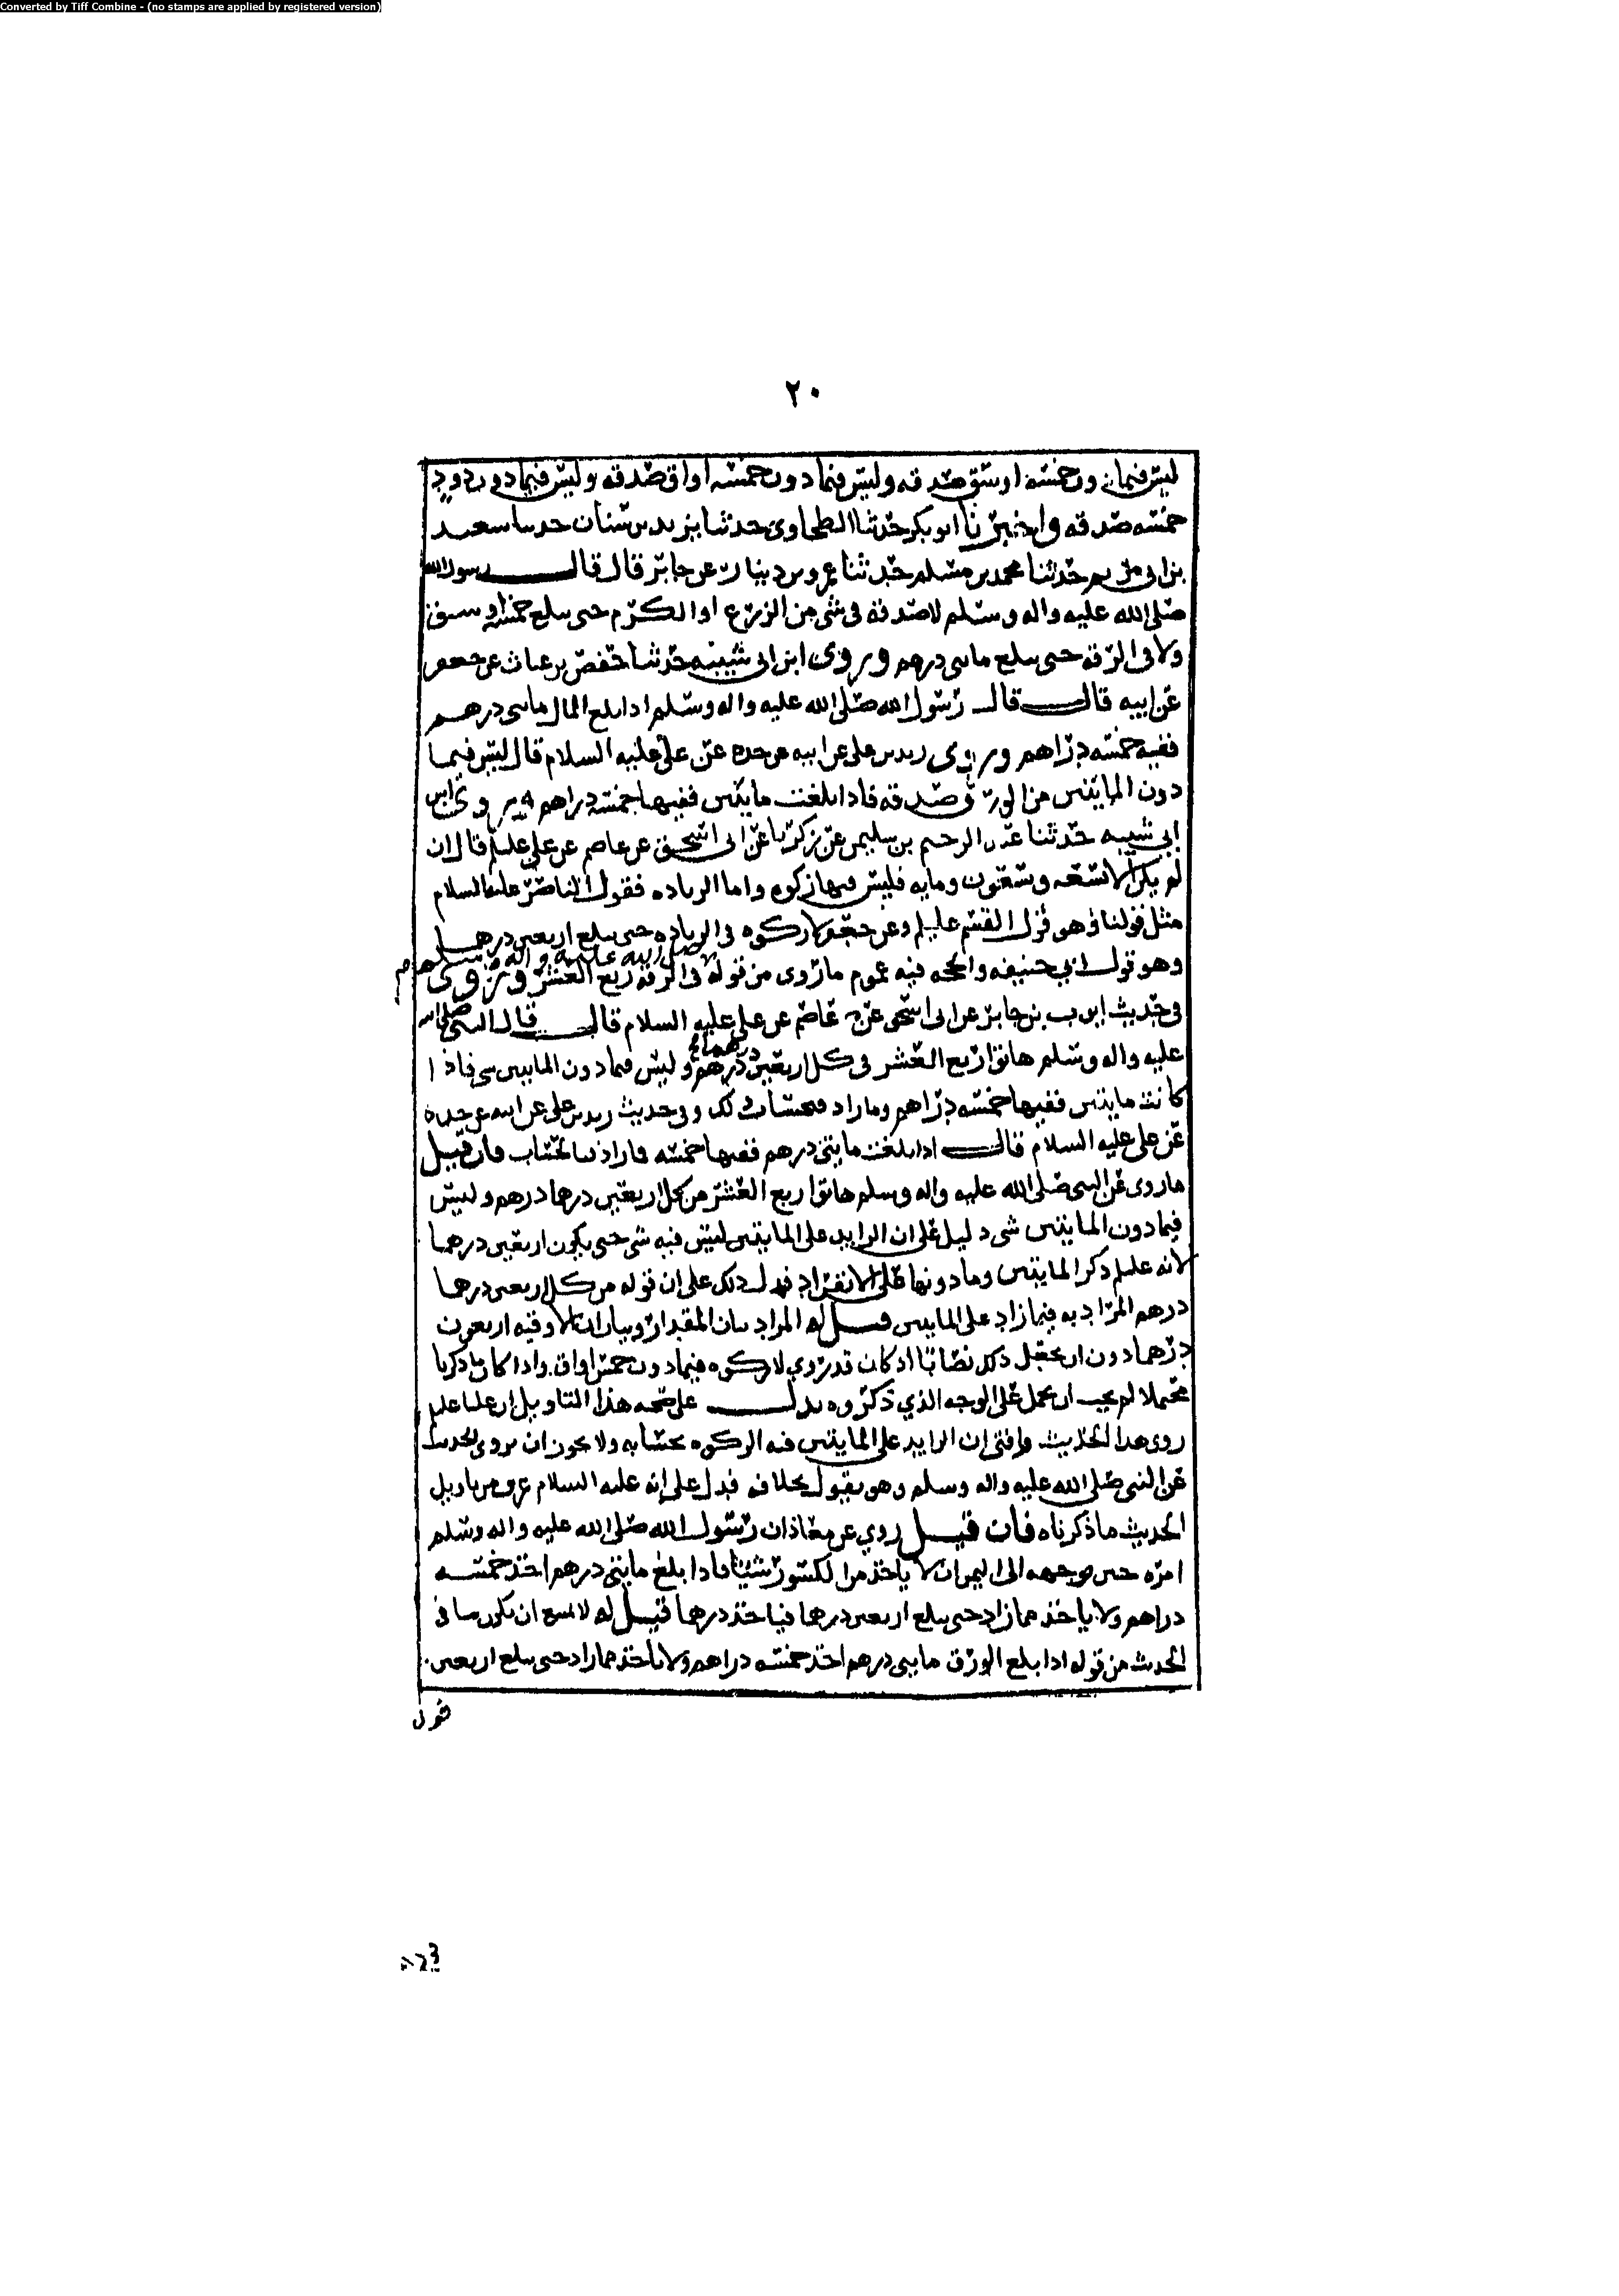 Converted by Tiff Combine - (no stamps are applied by registered version)
٢٠
ليس فيما دون خمسة اوسق صدقه وليس فيما دون خمسه اواق صدقه وليس فيما دون ذود
خمسه صدقه واخبرنا ابو بكر حدثنا الطحاوى حدثنا يزيد بن سنان حدثنا سعيد
بن ابى مريم حدثنا محمد بن مسلم حدثنا عمرو بن دينار عن جابر قال قال رسول الله
صلى الله عليه واله وسلم لا صدقة فى شى من الزرع او الكرم حتى يبلغ خمسه اوسق
ولا فى الرقه حتى يبلغ مايتى درهم وروى ابن ابى شيبه حدثنا حفص بن غياث عن جعفر
عن ابيه قال قال رسول الله صلى الله عليه واله وسلم اذا بلغ المال مايتى درهم
ففيه خمسه دراهم وروى زيد بن على عن ابيه عن جده عن على عليه السلام قال ليس فيما
دون المايتين من الورق صدقه فاذا بلغت مايتين ففيها خمسه دراهم وروى ابن
ابي شيبه حدثنا عبد الرحيم بن سليمن عن زكريا عن ابى اسحق عن عاصم عن على عليلم قال ان
لم يكن الا تسعه وتسعون ومايه فليس فيها زكوه واما الزياده فقول الناصر عليه السلام
مثل قولنا وهو قول القسم عليلم وعن لا زكوه فى الزياده حتى يبلغ اربعين درهما
وهو قول ابي حنيفه والحجه فيه عموم ما روى من قوله صلى الله عليه واله وسلم فى الرقه ربع العشر وروى
فى حديث بن جابر عن ابى اسحق عن عاصم عن على عليه السلام قال قال النبى صلى الله
عليه واله وسلم هاتوا ربع العشر فى كل اربعين درهم درهما وليس فيما دون المايتين شى فاذا
كانت مايتين ففيها خمسه دراهم وما زاد فبحساب ذلك وفى حديث زيد بن على عن ابيه عن جده
عن على عليه السلام قال اذا بلغت مايتى درهم ففيها خمسه فما زاد فبالحساب فان قيل
ما روى عن النبى صلى الله عليه واله وسلم هاتوا ربع العشر من كل اربعين درهما درهم وليس
فيما دون المايتين شى دليل على ان الزايد على المايتين ليس فيه شى حتى يكون اربعين درهما
لانه عليلم ذكر المايتين وما دونها على الانفراد فدل ذلك على ان قوله من كل اربعين درهما
درهم المراد به فيما زاد على المايتين قيل له المراد بيان المقدار وبيان ان الاوقيه اربعون
درهما دون ان يجعل ذلك نصابا اذ كان قد روي لا زكوه فيما دون خمس اواق واذا كان ما ذكرنا
محتملا لم يجب ان يحمل على الوجه الذي ذكروه يدل على صحه هذا التاويل ان عليا عليلم
روى هذا الحديث وافتى ان الزايد على المايتين فيه الزكوه بحسابه ولا يجوز ان يروى الحديث
عن النبى صلى الله عليه واله وسلم وهو يقول بخلافه فدل على انه عليه السلام عرف من تاويل
الحديث ما ذكرناه فان قيل روي عن معاذ ان رسول الله صلى الله عليه واله وسلم
امره حين توجهه الى اليمن ان لا ياخذ من الكسور شيئا فاذا بلغ مايتى درهم اخذ خمسه
دراهم ولا ياخذ مما زاد حتى يبلغ اربعين درهما فياخذ درهما قيل له لا يمتنع ان يكون ما فى
الحديث من قوله اذا بلغ الورق مايتى درهم اخذ خمسه دراهم ولا ياخذ مما زاد حتى يبلغ اربعين
قول